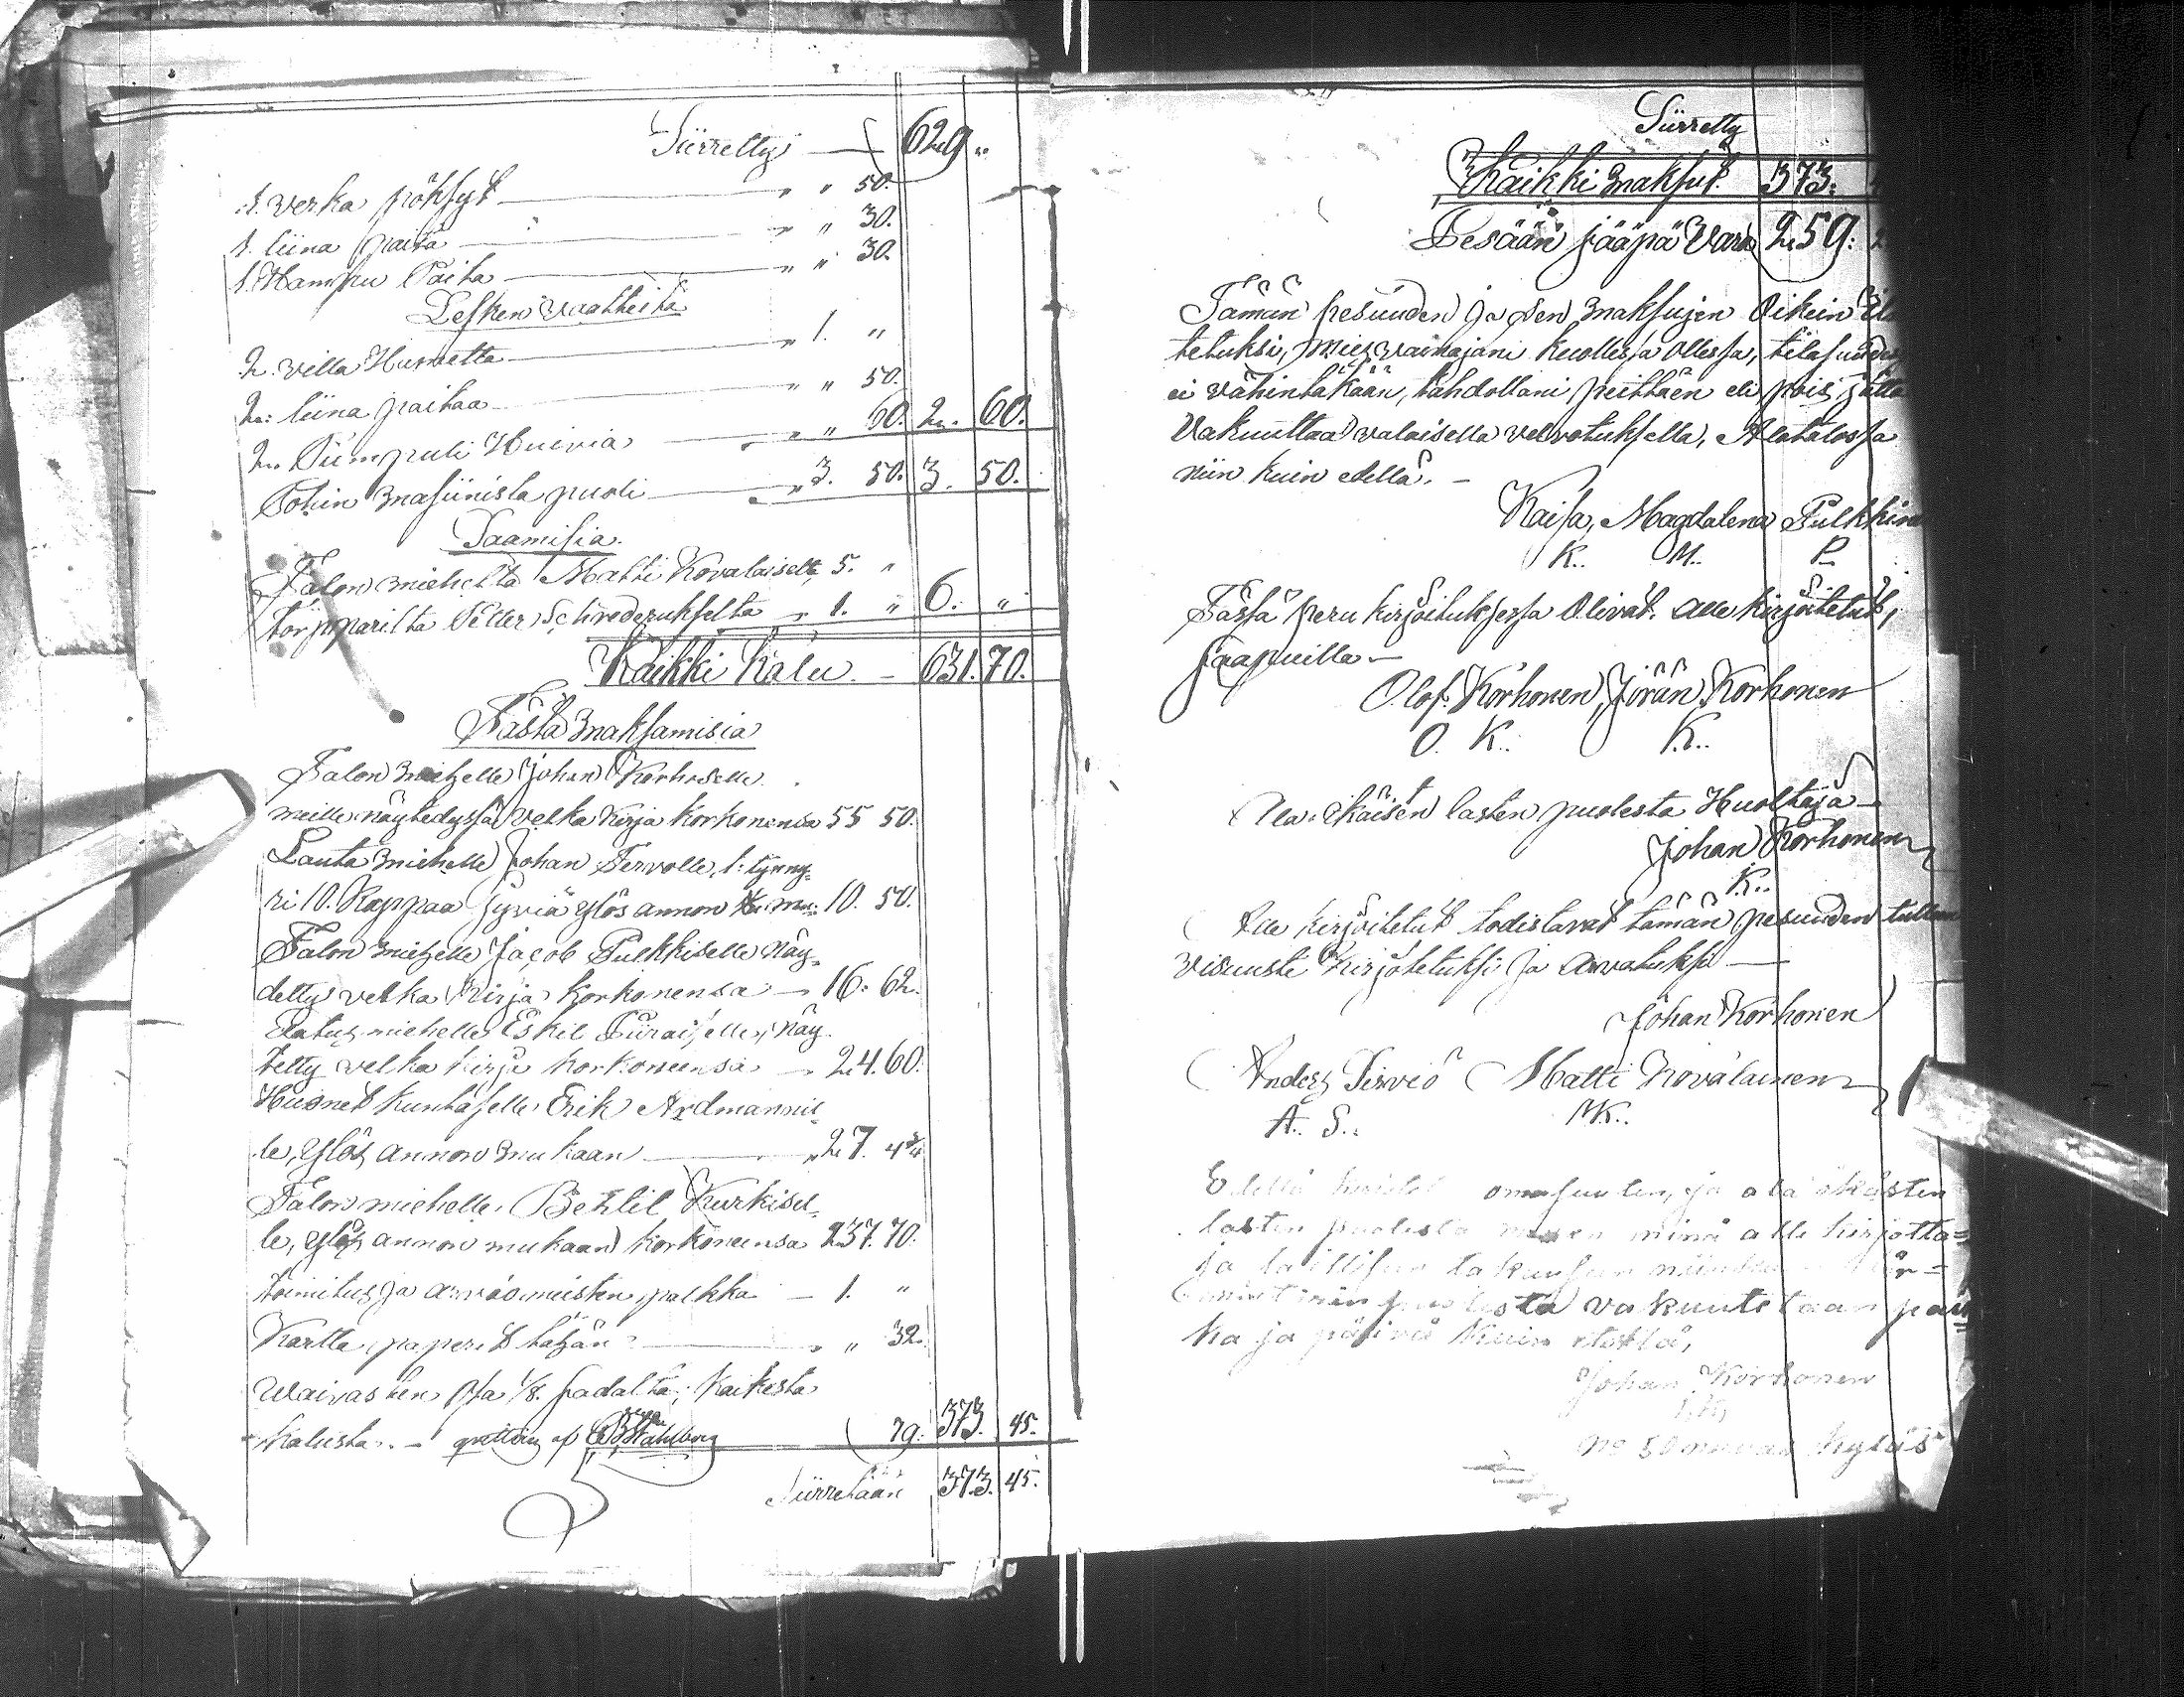 Siirretty — 629 "
1. verka pöksyt — " " 50.
1. liina paita — " " 30.
1. Hamppu Paita — " " 30.
Lesken vaatteita
2. villa Hametta — " 1. "
2: liina paitaa — " " 50.
2. Puumpuli Huivia — " " 60. 2. 60.
Pohin masiinista puoli — " 3. 50. 3. 50.
Saamisia.
Talon mieheltä Matti Kovalaiselta, 5. "
torpparilta Petter Schrederukselta " 1. " 6. "
Kaikki Kalu — 631. 70.
Tästä maksamisia
Talon miehelle Johan Korhoselle
meille näytedyssä velka kirja korkonensa 55 50.
Lauta miehelle Johan Tervolle, 1: tynny-
ri 10. Kappaa Jyviä ylös annon mu: 10. 50.
Talon miehelle Jacob Pulkkiselle Näy-
detty velka kirja korkonensa — 16. 62.
Elatus miehelle Eskil Piiraiselle, Näy
tetty velka kirja korkoneensa — 24. 60.
Huonet kuntaselle Erik Ardmannil-
le, ylös annon mukaan — " 27. 4¾
Talon miehelle, Bertil Kurkisel-
le, ylös annon mukaan korkoneensa 237. 70.
toimitus ja arvio miesten palkka — 1. "
Kartta paperit tähän — " " 32.
Waivasten Osa 1/8. sadalta; kaikesta
Kalusta. — qvitton af Ståhlberg 79. 373. 45.
Siirretään 373. 45.
Siirretty
Kaikki maksut. 373:
Pesään jääpä Vara 259:
Tämän pesuuden ja sen maksujen Oikein
tetuksi, mies vainajani kuollessa ollessa, tilasuudes
ei vähintäkään, tahdollani peittäen eli pois jättä
Vakuuttaa valaisella velvotuksella, Alatalossa
niin kuin edellä. —
Kaisa, Magdalena Pulkkine
K.. M.. P..
Tässä peru kirjoituksessa Olivat. alle kirjoitetut,
saapuilla —
Olof. Korhonen, Jörän, Korhonen
O. K.. K..
Ala-ikäisen lasten puolesta Huoltaja —
Johan Korhonen
K..
Alle kirjoitetut todistavat tämän pesuuden tullen
visuusti kirjotetuksi ja arvatuksi —
Johan Korhonen
Anders Sirviö Matti Kovalainen
A.. S.. M.K..
Edellä omasuuten, ja ala ikästen
lasten puolesta minä alle kirjotta=
ja laillisen takausen
puolesta vakuutetaan pai
ka ja päivä kuin etellä,
Johan Korhonen